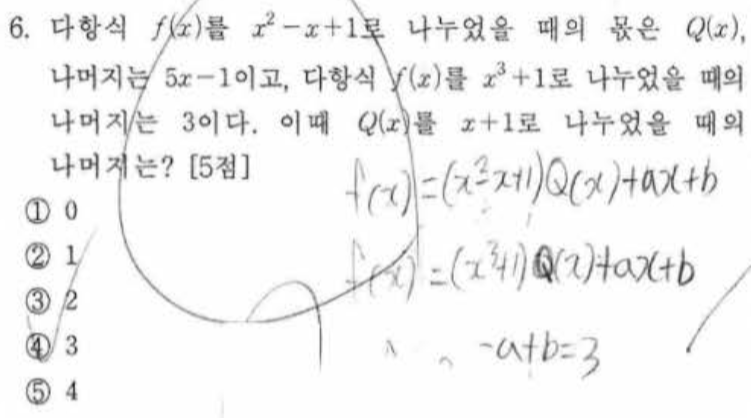 6. 다항식 f(x)를 x²-x+1로 나누었을 때의 몫은 Q(x),
나머지는 5x-1이고, 다항식 f(x)를 x³+1로 나누었을 때의
나머지는 3이다. 이때 Q(x)를 x+1로 나누었을 때의
나머지는? [5점]
f(x)=(x²-x+1)Q(x)+ax+b
① 0
② 1
f(x)=(x³+1)Q(x)+ax+b
③ 2
④ 3
-a+b=3
⑤ 4